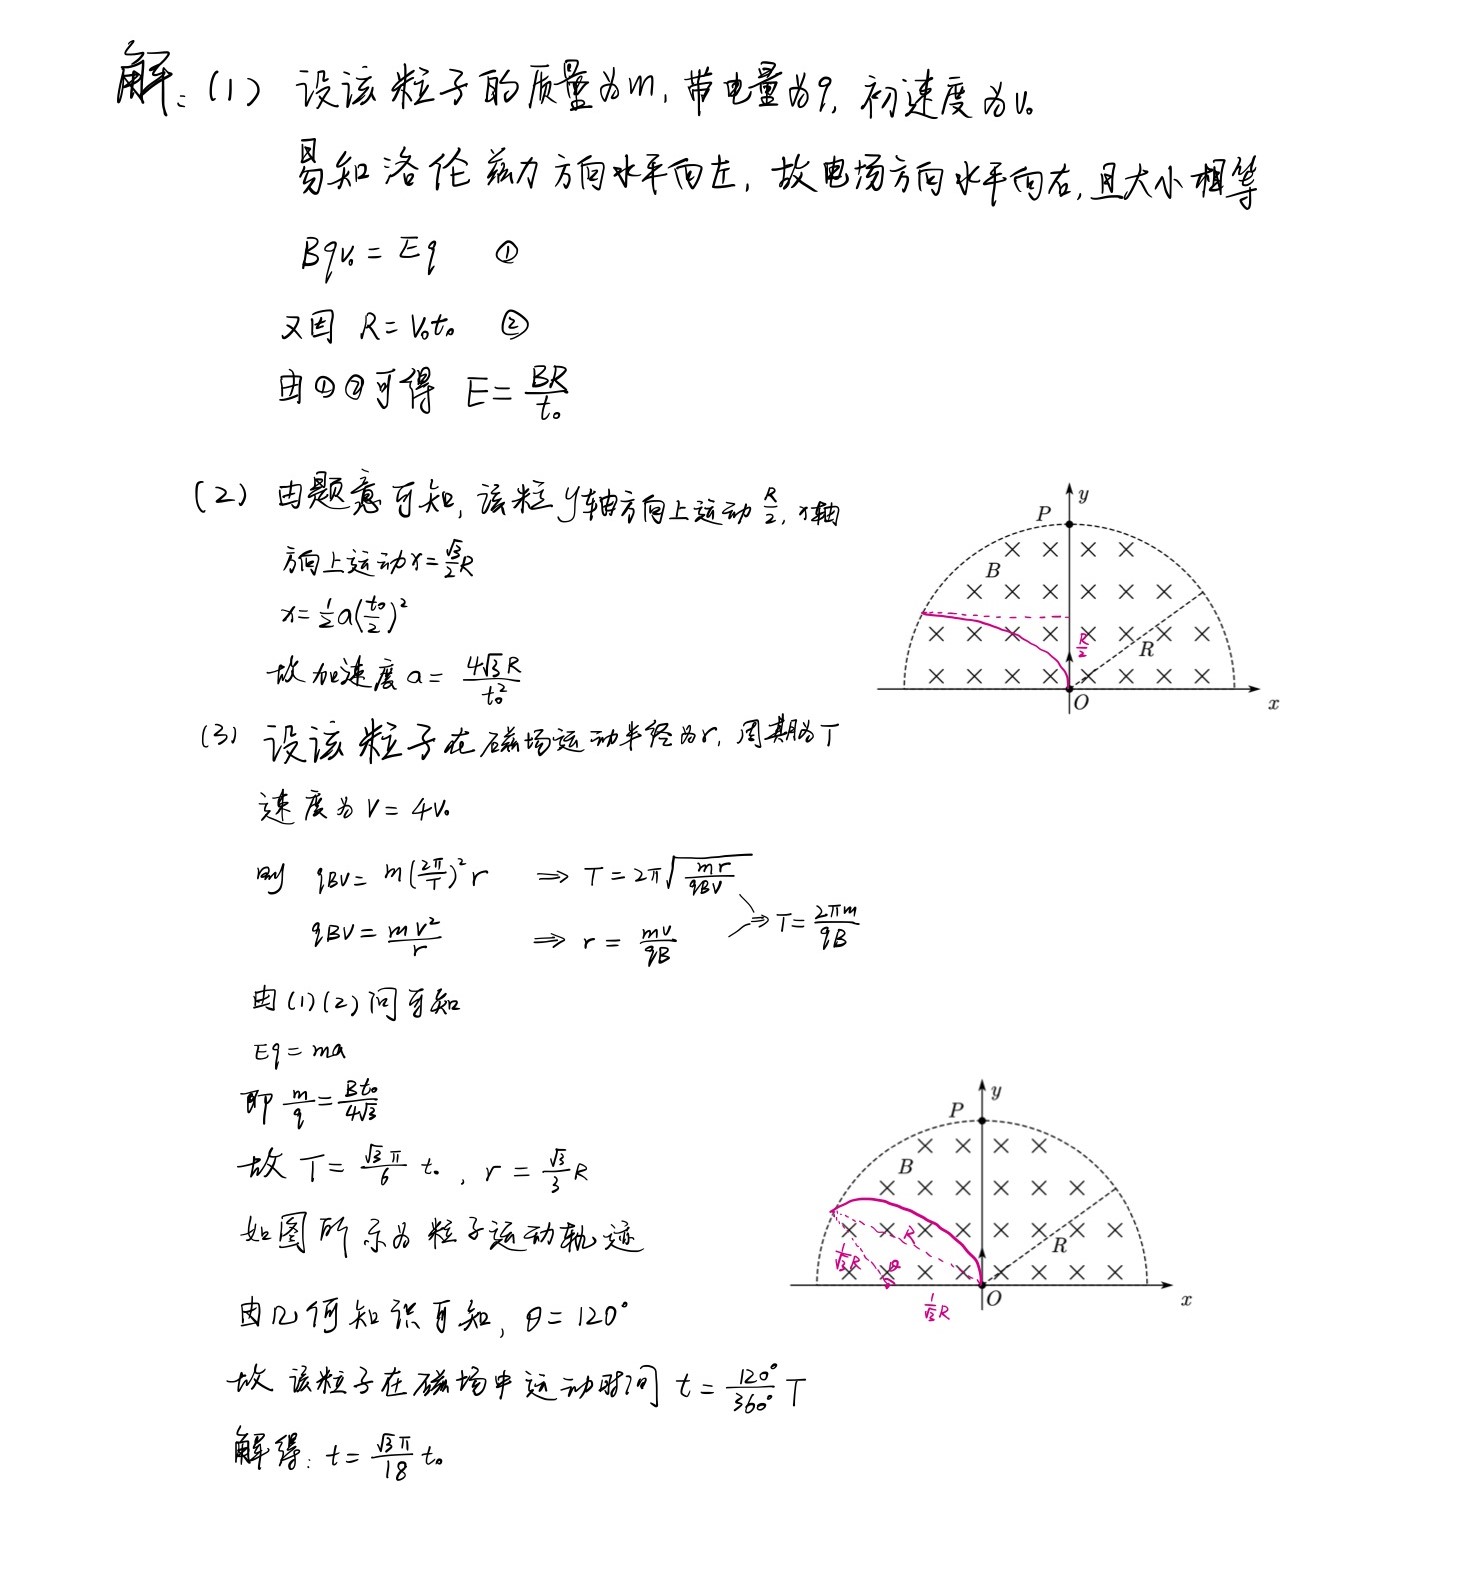 解：(1) 设该粒子的质量为m，带电量为q，初速度为v₀
易知洛伦兹力方向水平向左，故电场方向水平向右，且大小相等
Bqv₀ = Eq ①
又因 R = v₀t₀ ②
由①②可得 E = BR/t₀
(2) 由题意可知，该粒y轴方向上运动 R/2，x轴
方向上运动x = √3/2 R
x = 1/2 a(t₀/2)²
故加速度 a = 4√3R/t₀²
P y
B
R/2
R
O
x
(3) 设该粒子在磁场运动半径为r，周期为T
速度为 V = 4V₀
则 qBV = m(2π/T)²r ⇒ T = 2π√(mr/qBV)
qBV = mV²/r ⇒ r = mV/qB ⇒ T = 2πm/qB
由(1)(2)问可知
Eq = ma
即 m/q = Bt₀/4√3
故 T = √3π/6 t₀，r = √3/3 R
如图所示为粒子运动轨迹
由几何知识可知，θ = 120°
故该粒子在磁场中运动时间 t = 120°/360° T
解得：t = √3π/18 t₀
P y
B
R
R
1/√3 R
θ
1/√3 R
O
x